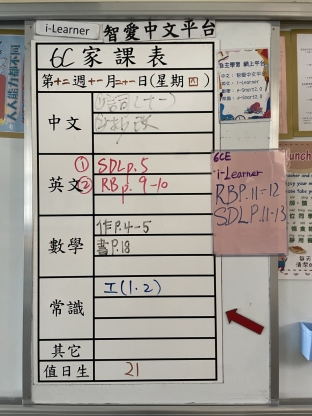 i-Learner 智愛中文平台
6C 家課表
第十二週十一月二十一日(星期四)
中文
①詞(十一)
英文
① SDLp.5
② RBp. 9-10
數學
作P.4-5
書P.18
常識
工(1.2)
其它
值日生
21
6CE
i-Learner
RBP.11-12
SDLP.11-13
自主學習 網上平台
Lunch